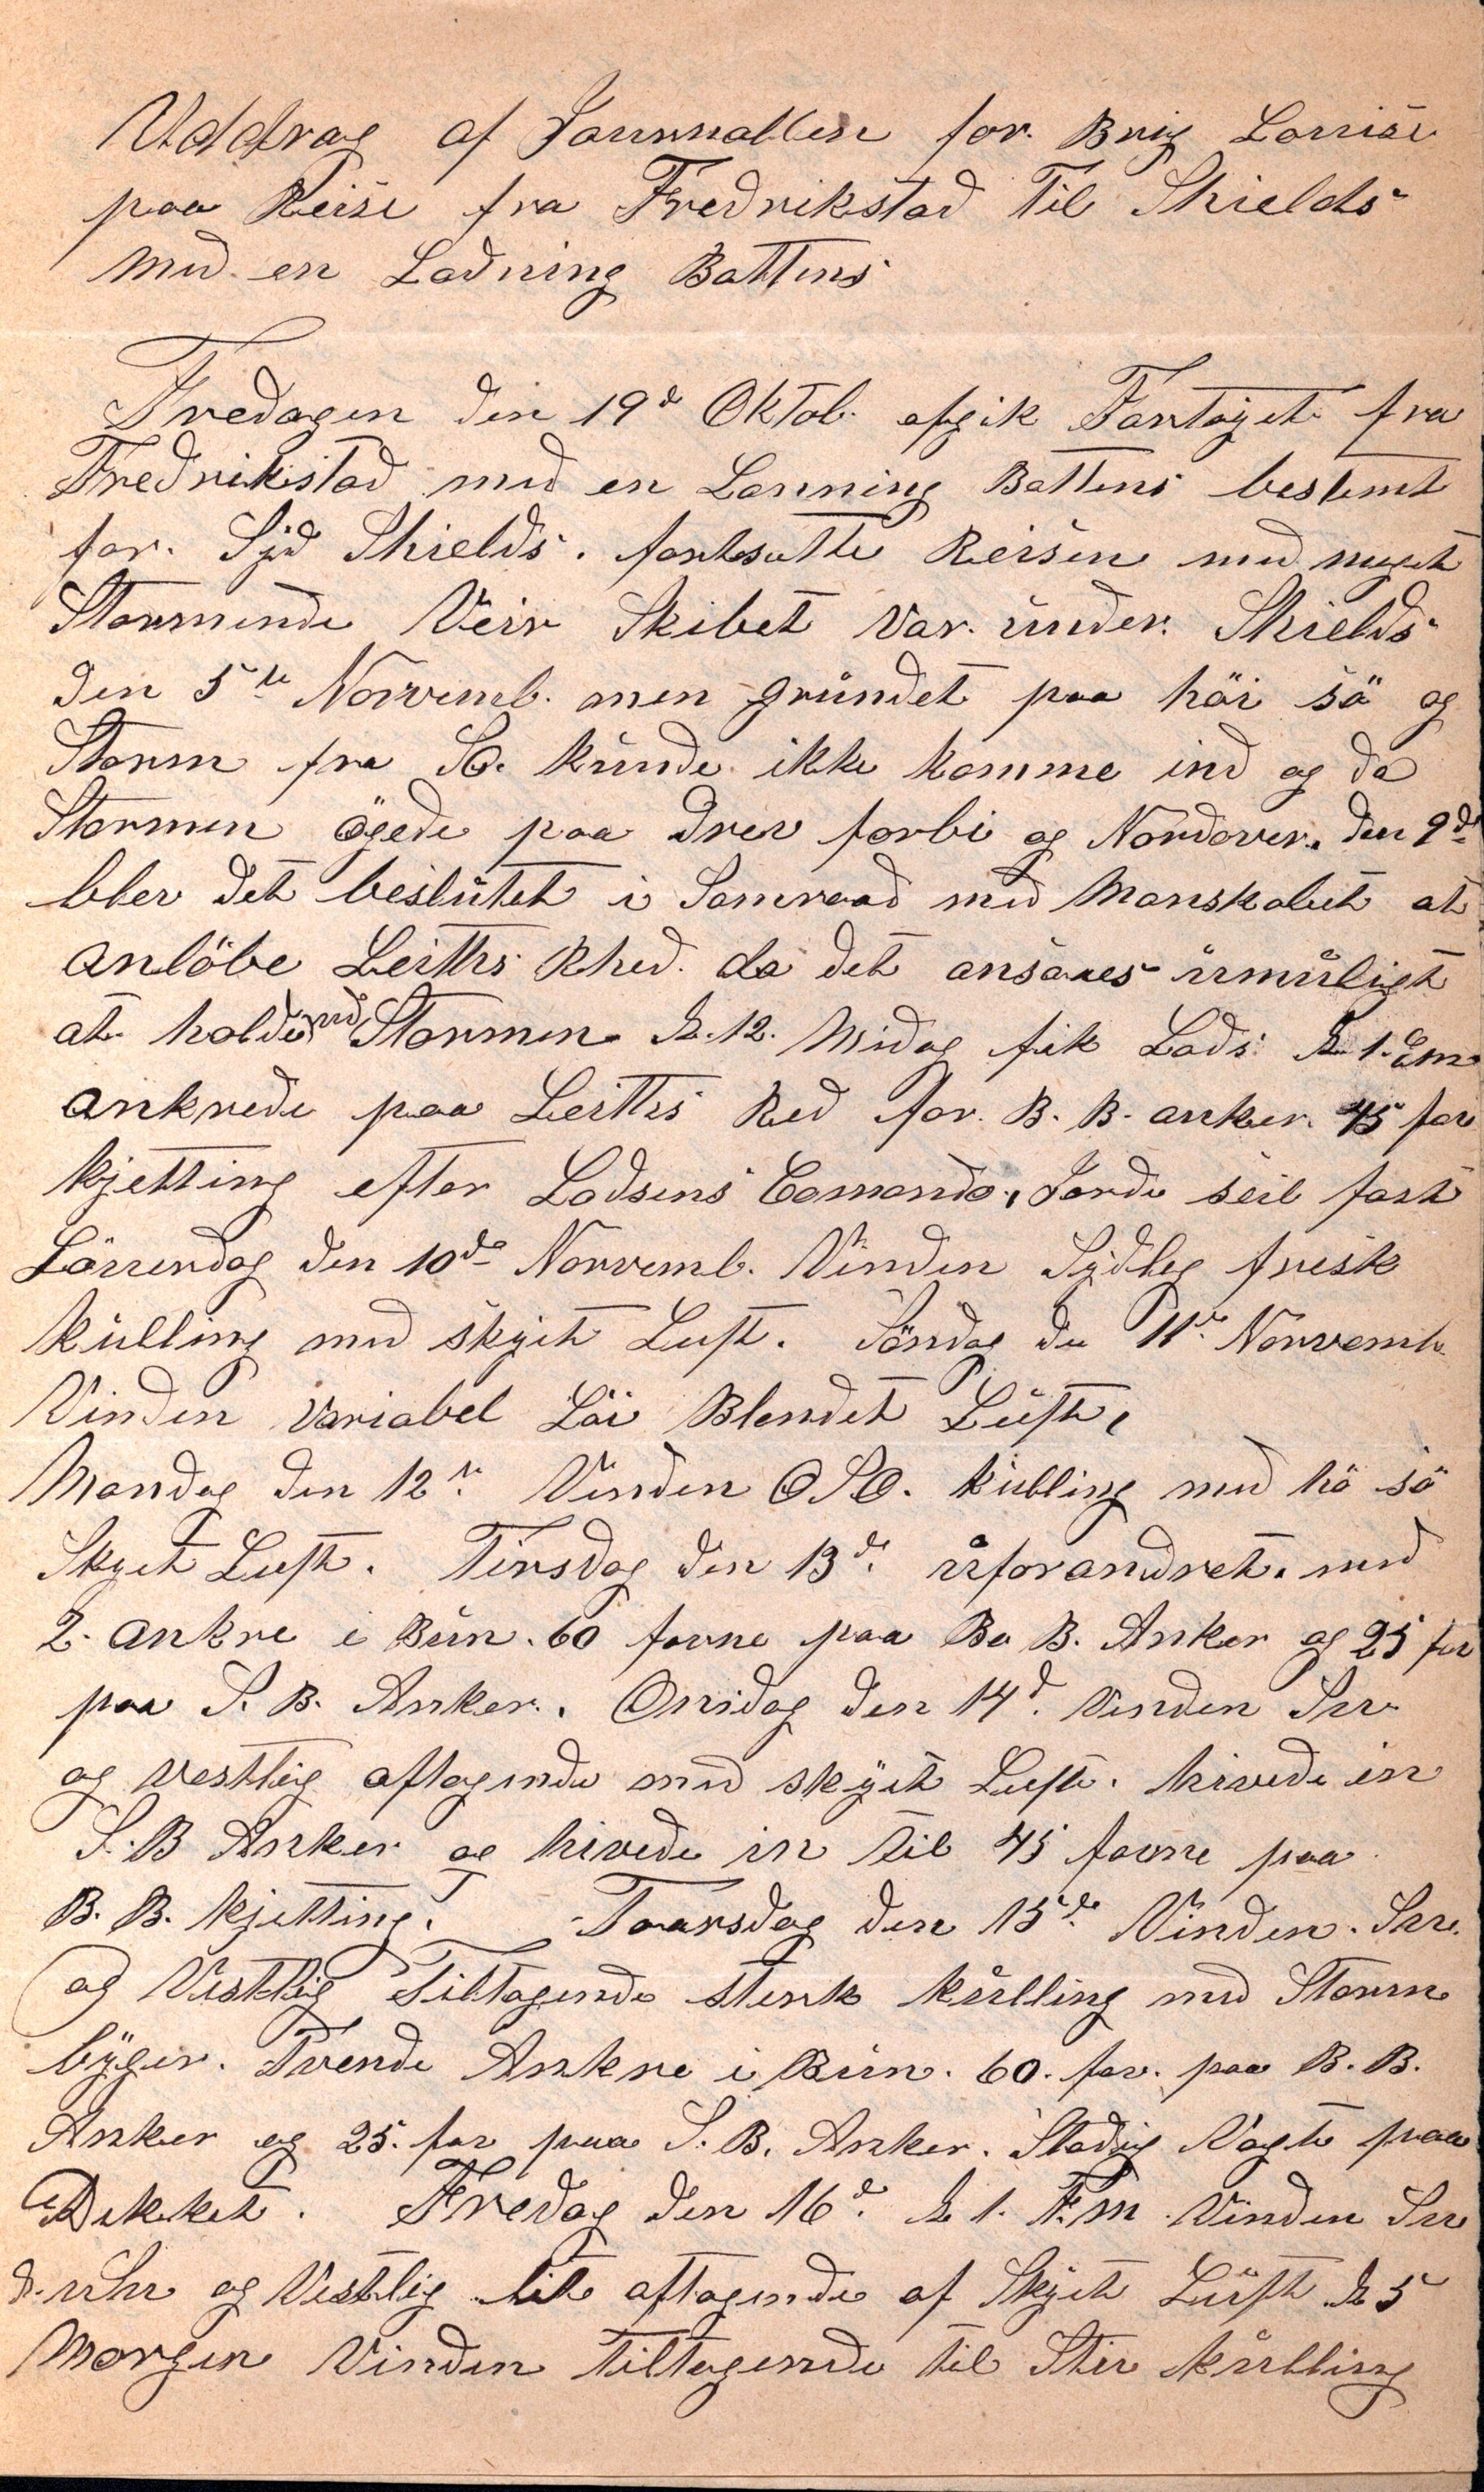 Uddrag af Journallen for Brig Lovise
paa Reise fra Fredrikstad Til Shields
med en Ladning Battens
Fredagen den 19d Oktob. afgik Fartöyet fra
Fredrikstad med en Lanning Battens bestemt
for. Syd Shields. fortsatte Reisen med meget
Stormende Veir Skibet var under. Shields
den 5te Novemb. men grundet paa höi sö og
Storm fra SO. kunde ikke komme ind og da
Stormen ögede paa drev forbi og Nordover. den 9de
blev det besluttet i Samraad med Manskabet at
anlöbe Leiths Rhed. da det ansaaes umuligt
at holde ud Stormen. K. 12. Midag fik Lods K 1. Em
ankrede paa Leiths Red for. B. B. anker. 45 fav
kjetting efter Lodsens Comando, Jorde seil fast
Löverdag den 10de Novemb. Vinden Sydlig frisk
kulling med skyet Luft. Söndag de 11te Novemb
Vinden variabel Löi Blendet Luft,
Mandag den 12te. Vinden OSO. kulling med hö sö
Skyet Luft. Tirsdag den 13de. uforandret. med
2. ankre i Bun. 60 favne paa B. B. Anker og 25 fav
paa S. B. Anker. Onsdag den 14d. Vinden Sv
og vestlig aftagende med skyet Luft. hivede in
S. B Anker og hivede in til 45 favne paa
B. B. kjetting. Toarsdag den 15de. Vinden. Sv.
og Vestlig Tiltagende sterk kulling med Storm
byger. Tvende Ankre i Bun. 60. fav. paa B. B.
Anker og 25. fav paa S. B. Anker. Stadig Vagt paa
Dekket. Fredag den 16d. K 1. F.m. Vinden Sv
og Vestlig lit aftagende af Skyet Luft K 5
Morgen Vinden tiltagende til Stiv kulling